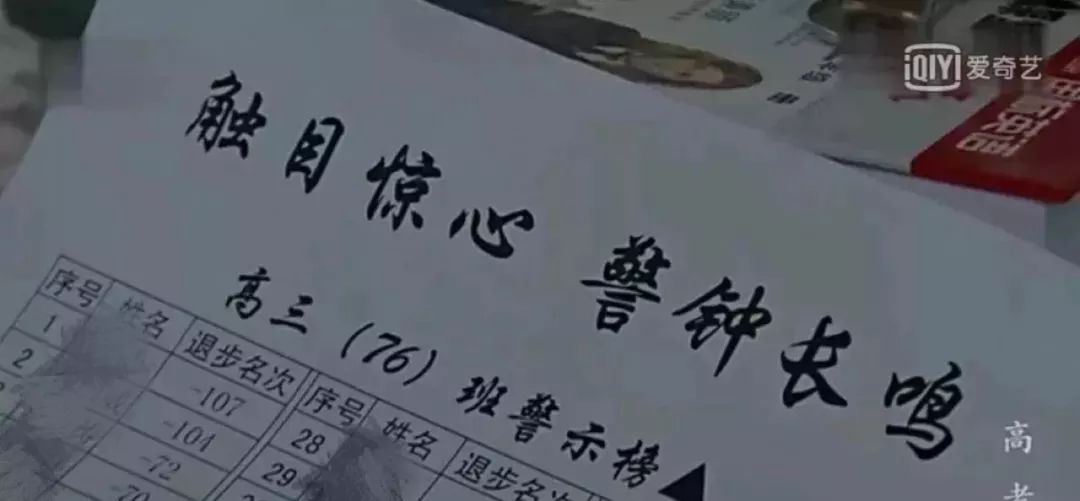 iQIYI 爱奇艺
触目惊心 警钟长鸣
高三(76)班警示榜
序号 姓名 退步名次 序号 姓名 退步名次
1 -107 28
2 -104 29
-72
-70
高考